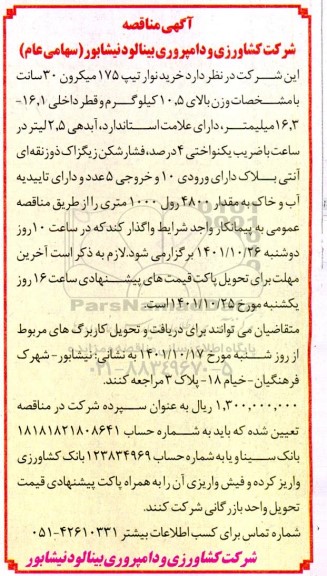 آگهی مناقصه
شرکت کشاورزی و دامپروری بینالود نیشابور (سهامی عام)
این شرکت در نظر دارد خرید نوار تیپ ۱۷۵ میکرون ۳۰ سانت
با مشخصات وزن بالای ۱۰,۵ کیلوگرم و قطر داخلی ۱۶,۱-
۱۶,۳ میلیمتر، دارای علامت استاندارد، آبدهی ۲,۵ لیتر در
ساعت با ضریب یکنواختی ۴ درصد، فشار شکن زیگزاک ذوزنقه ای
آنتی بلاک دارای ورودی ۱۰ و خروجی ۵ عدد و دارای تاییدیه
آب و خاک به مقدار ۴۸۰۰ رول ۱۰۰۰ متری را از طریق مناقصه
عمومی به پیمانکار واجد شرایط واگذار کند که در ساعت ۱۰ روز
دوشنبه ۱۴۰۱/۱۰/۲۶ برگزار می شود، لازم به ذکر است آخرین
مهلت برای تحویل پاکت قیمت های پیشنهادی ساعت ۱۶ روز
یکشنبه مورخ ۱۴۰۱/۱۰/۲۵ است.
متقاضیان می توانند برای دریافت و تحویل کاربرگ های مربوط
از روز شنبه مورخ ۱۴۰۱/۱۰/۱۷ به نشانی: نیشابور - شهرک
فرهنگیان - خیام ۱۸ - پلاک ۳ مراجعه کنند.
۱,۳۰۰,۰۰۰,۰۰۰ ریال به عنوان سپرده شرکت در مناقصه
تعیین شده که باید به شماره حساب ۱۸۱۸۱۸۲۱۸۰۸۶۴۱
بانک سینا و یا به شماره حساب ۱۲۳۸۳۴۹۶۹ بانک کشاورزی
واریز کرده و فیش واریزی آن را به همراه پاکت پیشنهادی قیمت
تحویل واحد بازرگانی شرکت کنند.
شماره تماس برای کسب اطلاعات بیشتر ۴۲۶۱۰۳۳۱-۰۵۱
شرکت کشاورزی و دامپروری بینالود نیشابور